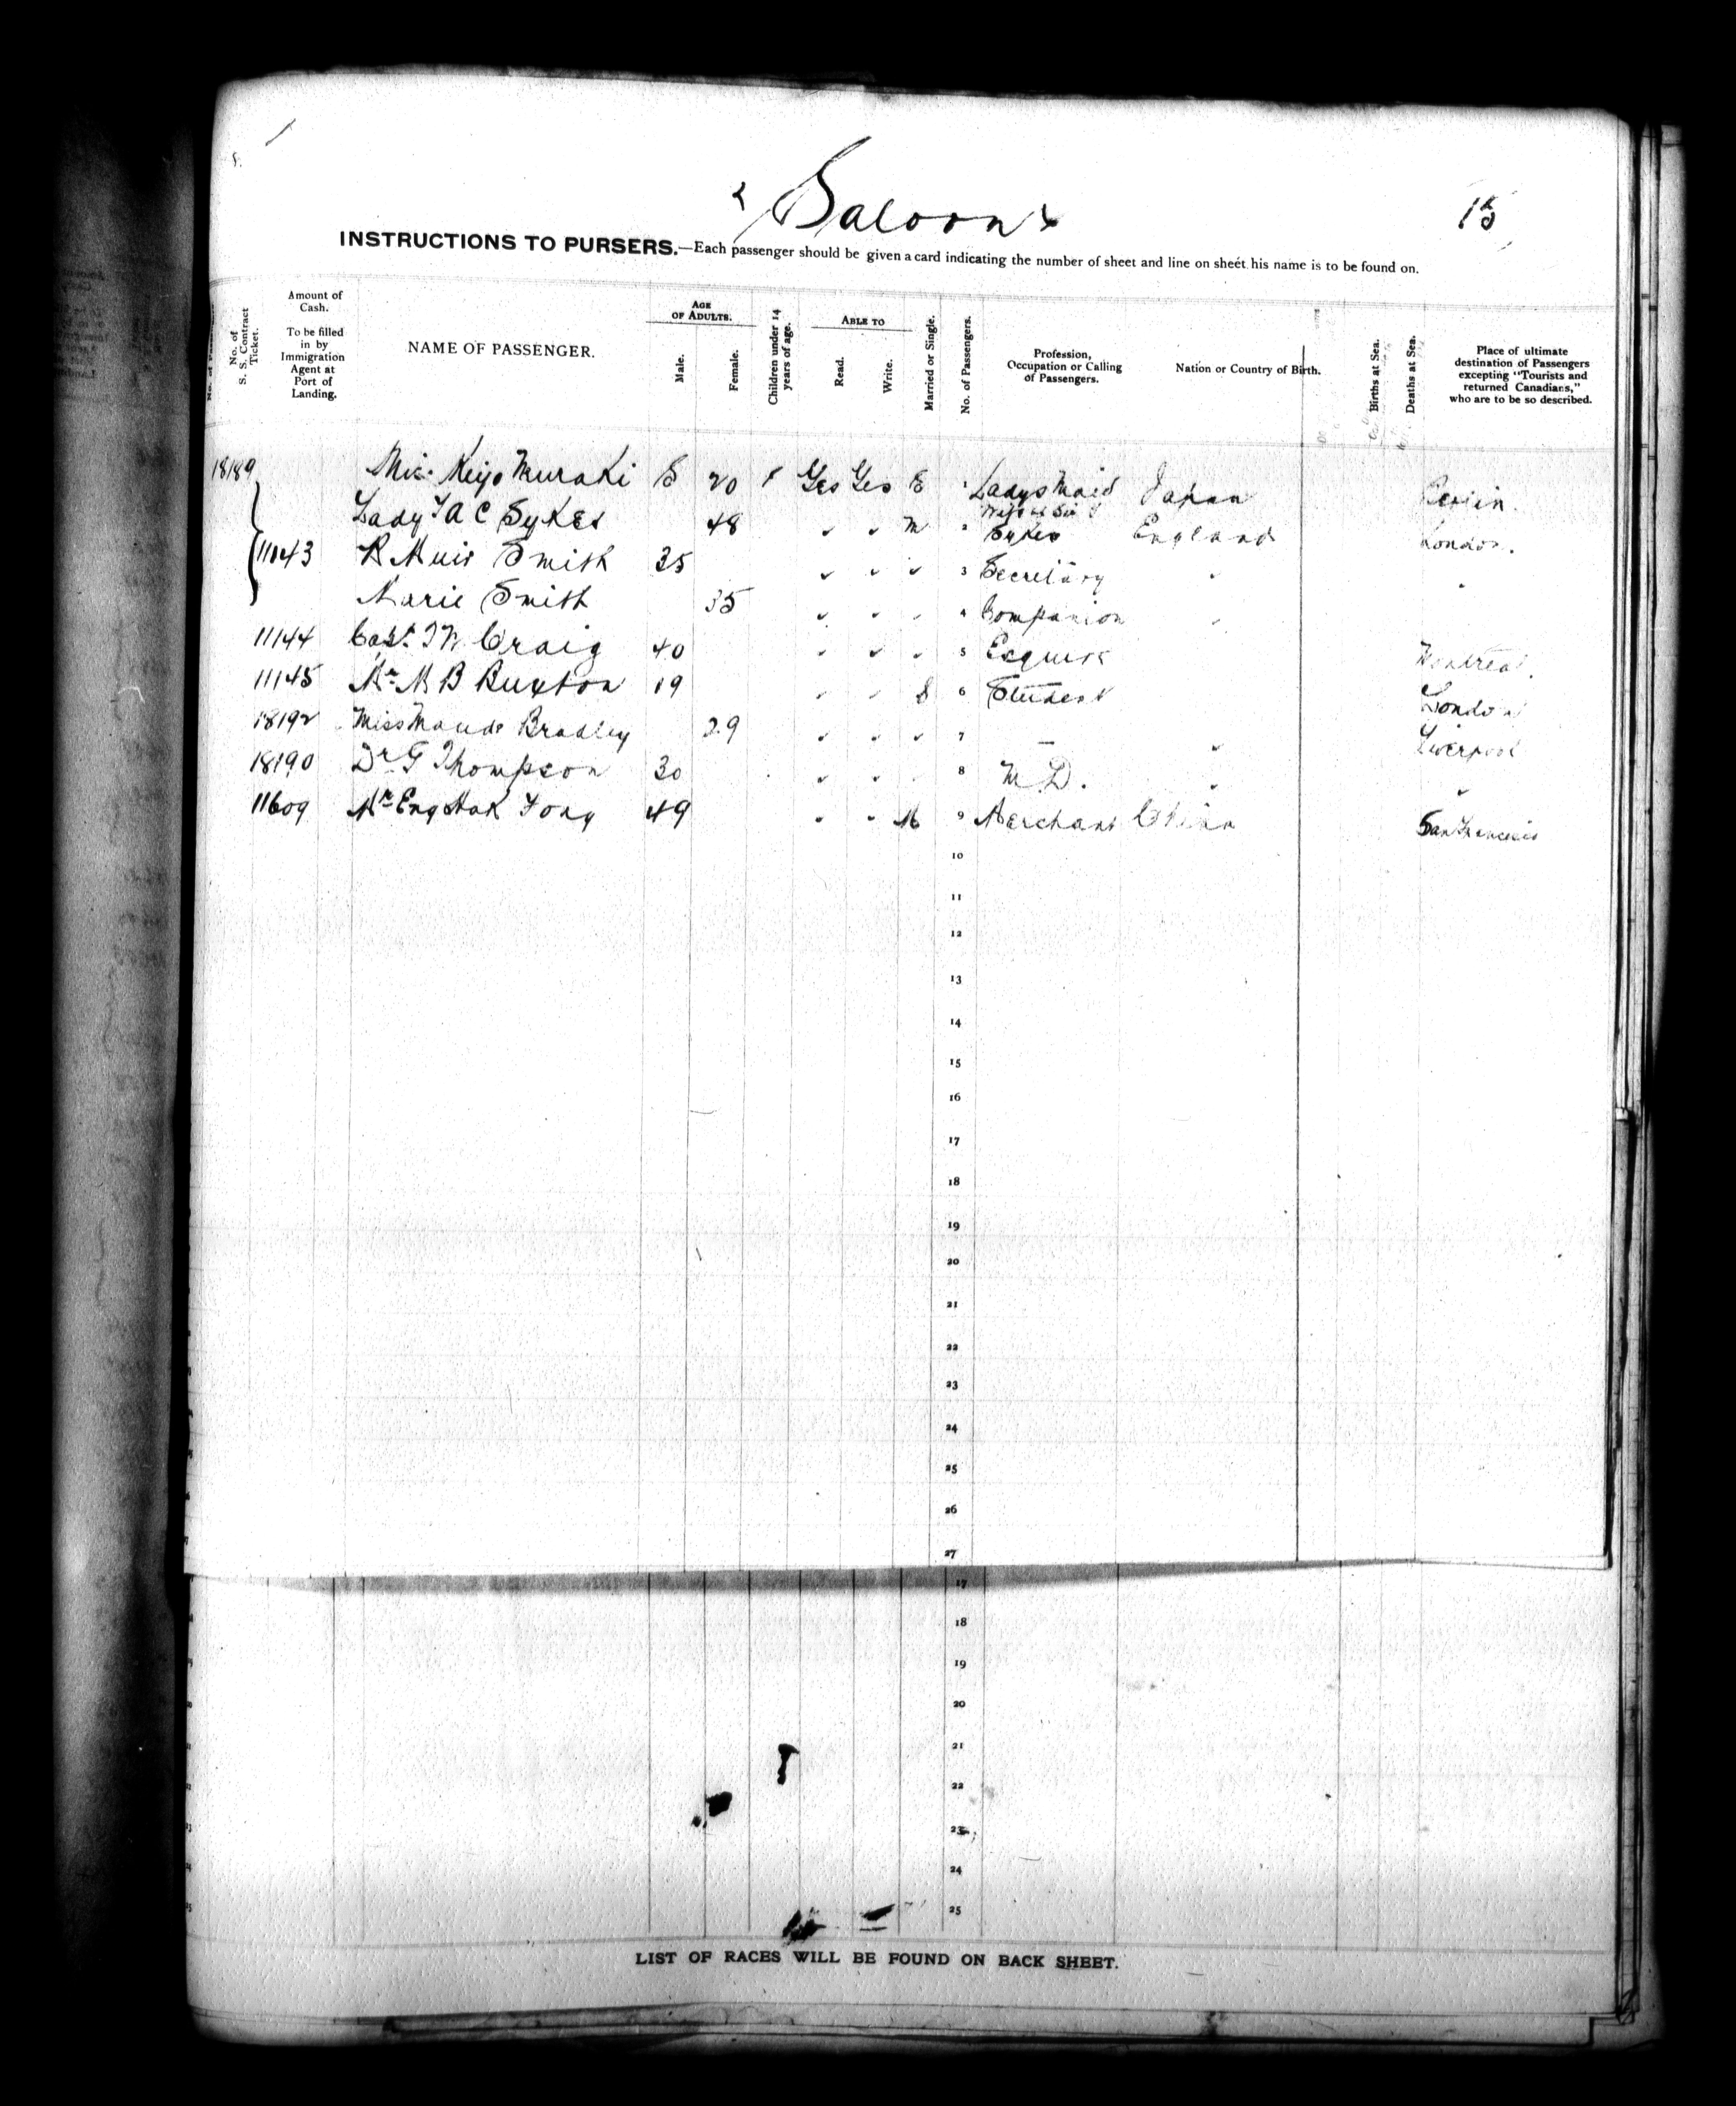 "Saloon"
15
INSTRUCTIONS TO PURSERS.—Each passenger should be given a card indicating the number of sheet and line on sheet his name is to be found on.
No. of S. S. Contract Ticket.
Amount of Cash.
To be filled in by Immigration Agent at Port of Landing.
NAME OF PASSENGER.
AGE OF ADULTS.
Male.
Female.
Children under 14 years of age.
ABLE TO
Read.
Write.
Married or Single.
No. of Passengers.
Profession, Occupation or Calling of Passengers.
Nation or Country of Birth.
Births at Sea.
Deaths at Sea.
Place of ultimate destination of Passengers excepting "Tourists and returned Canadians," who are to be so described.
18189 Miss Keiyo Muraki S 20 Yes Yes 1 Ladys Maid Japan Berlin.
Lady A C Sykes 48 " " M 2 Wife of Sir Sykes England London.
11143 R Muir Smith 35 " " " 3 Secretary "
Marie Smith 35 " " " 4 Companion "
11144 Capt. Craig 40 " " " 5 Esquire Montreal.
11145 Mr M B Buxton 19 " " S 6 Student London
18192 Miss Maude Bradley 29 " " " 7 — " Liverpool
18190 Dr G Thompson 30 " " 8 M.D. " "
11609 Mr Eng Hok Fong 49 " " M 9 Merchant China San Francisco
10
11
12
13
14
15
16
17
18
19
20
21
22
23
24
25
26
27
17
18
19
20
21
22
23
24
25
LIST OF RACES WILL BE FOUND ON BACK SHEET.